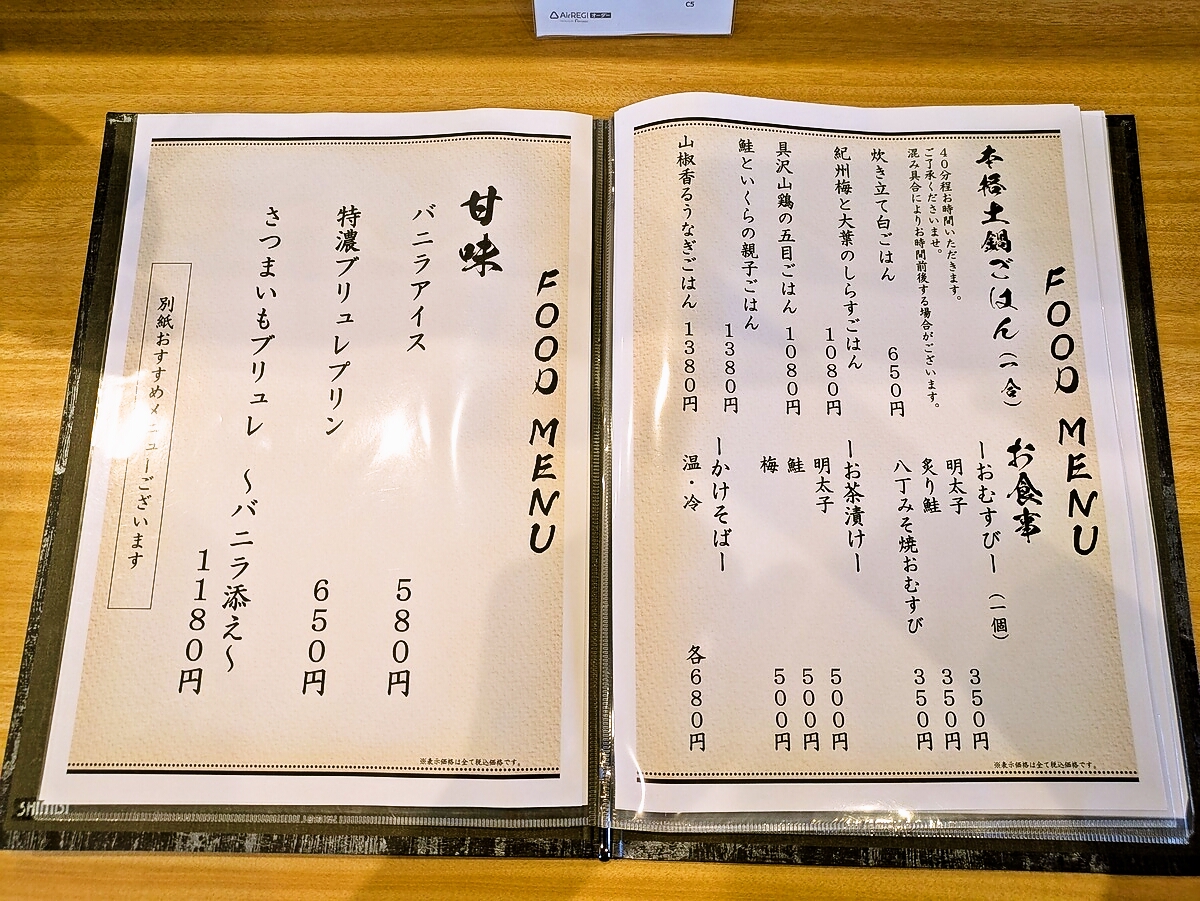 AirREGI オーダー
C5
FOOD MENU
本格土鍋ごはん(一合)
40分程お時間いただきます。
ご了承くださいませ。
混み具合によりお時間前後する場合がございます。
炊き立て白ごはん
650円
紀州梅と大葉のしらすごはん
1080円
具沢山鶏の五目ごはん
1080円
鮭といくらの親子ごはん
1380円
山椒香るうなぎごはん
1380円
お食事
ーおむすびー(一個)
明太子
350円
炙り鮭
350円
八丁みそ焼おむすび
350円
ーお茶漬けー
明太子
500円
鮭
500円
梅
500円
ーかけそばー
温・冷
各680円
※表示価格は全て税込価格です。
FOOD MENU
甘味
バニラアイス
580円
特濃ブリュレプリン
650円
さつまいもブリュレ ~バニラ添え~
1180円
別紙おすすめメニューございます
※表示価格は全て税込価格です。
SHIMBI